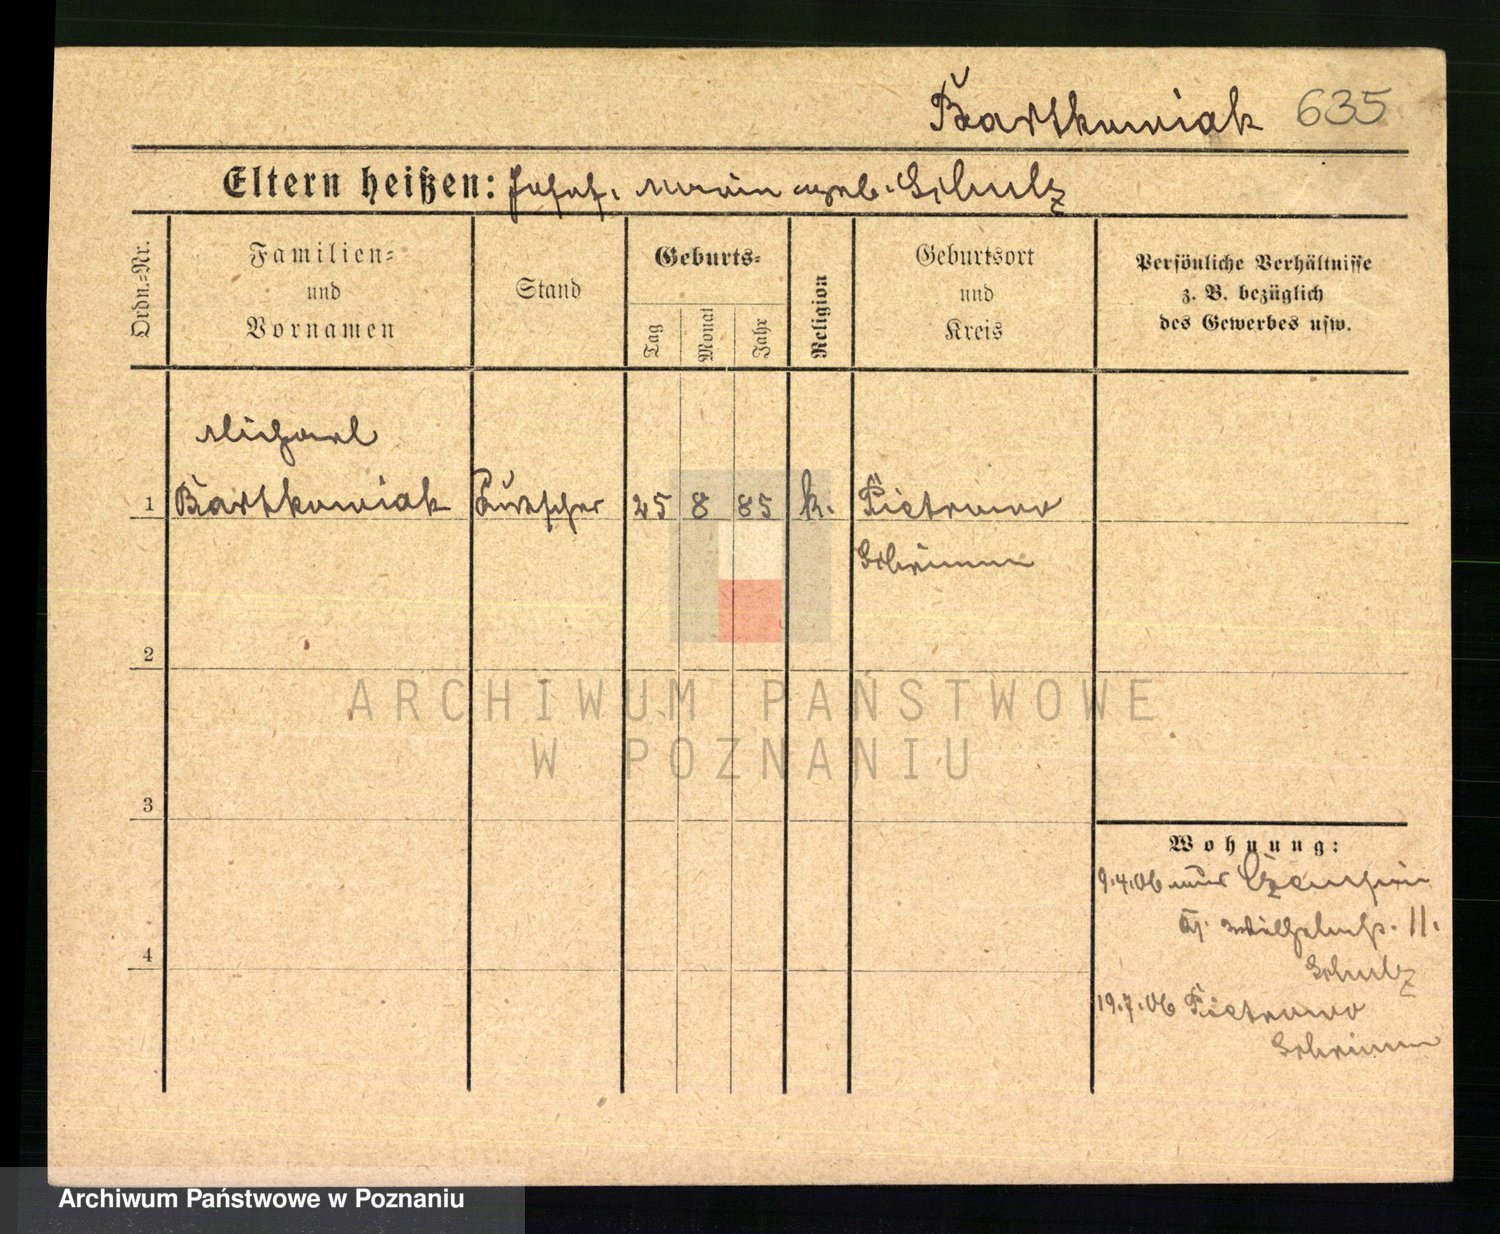 Bartkowiak 635
Eltern heißen: Josef, Maria geb. Schulz
Ordn.-Nr.
Familien-
und
Vornamen
Stand
Geburts-
Tag
Monat
Jahr
Religion
Geburtsort
und
Kreis
Persönliche Verhältnisse
z. B. bezüglich
des Gewerbes usw.
Michael
1 Bartkowiak Kutscher 25 8 85 k. Pietrowo
Schrimm
2
ARCHIWUM PAŃSTWOWE
W POZNANIU
3
Wohnung:
9.4.06 aus Czempin
Wilhelmstr. 11.
4
Schulz
19.7.06 Pietrowo
Schrimm
Archiwum Państwowe w Poznaniu